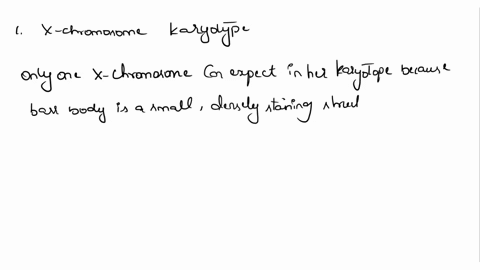 1. X-chromosome karyotype
only one X-chromosome can expect in her karyotope because
barr body is a small, densely staining struct